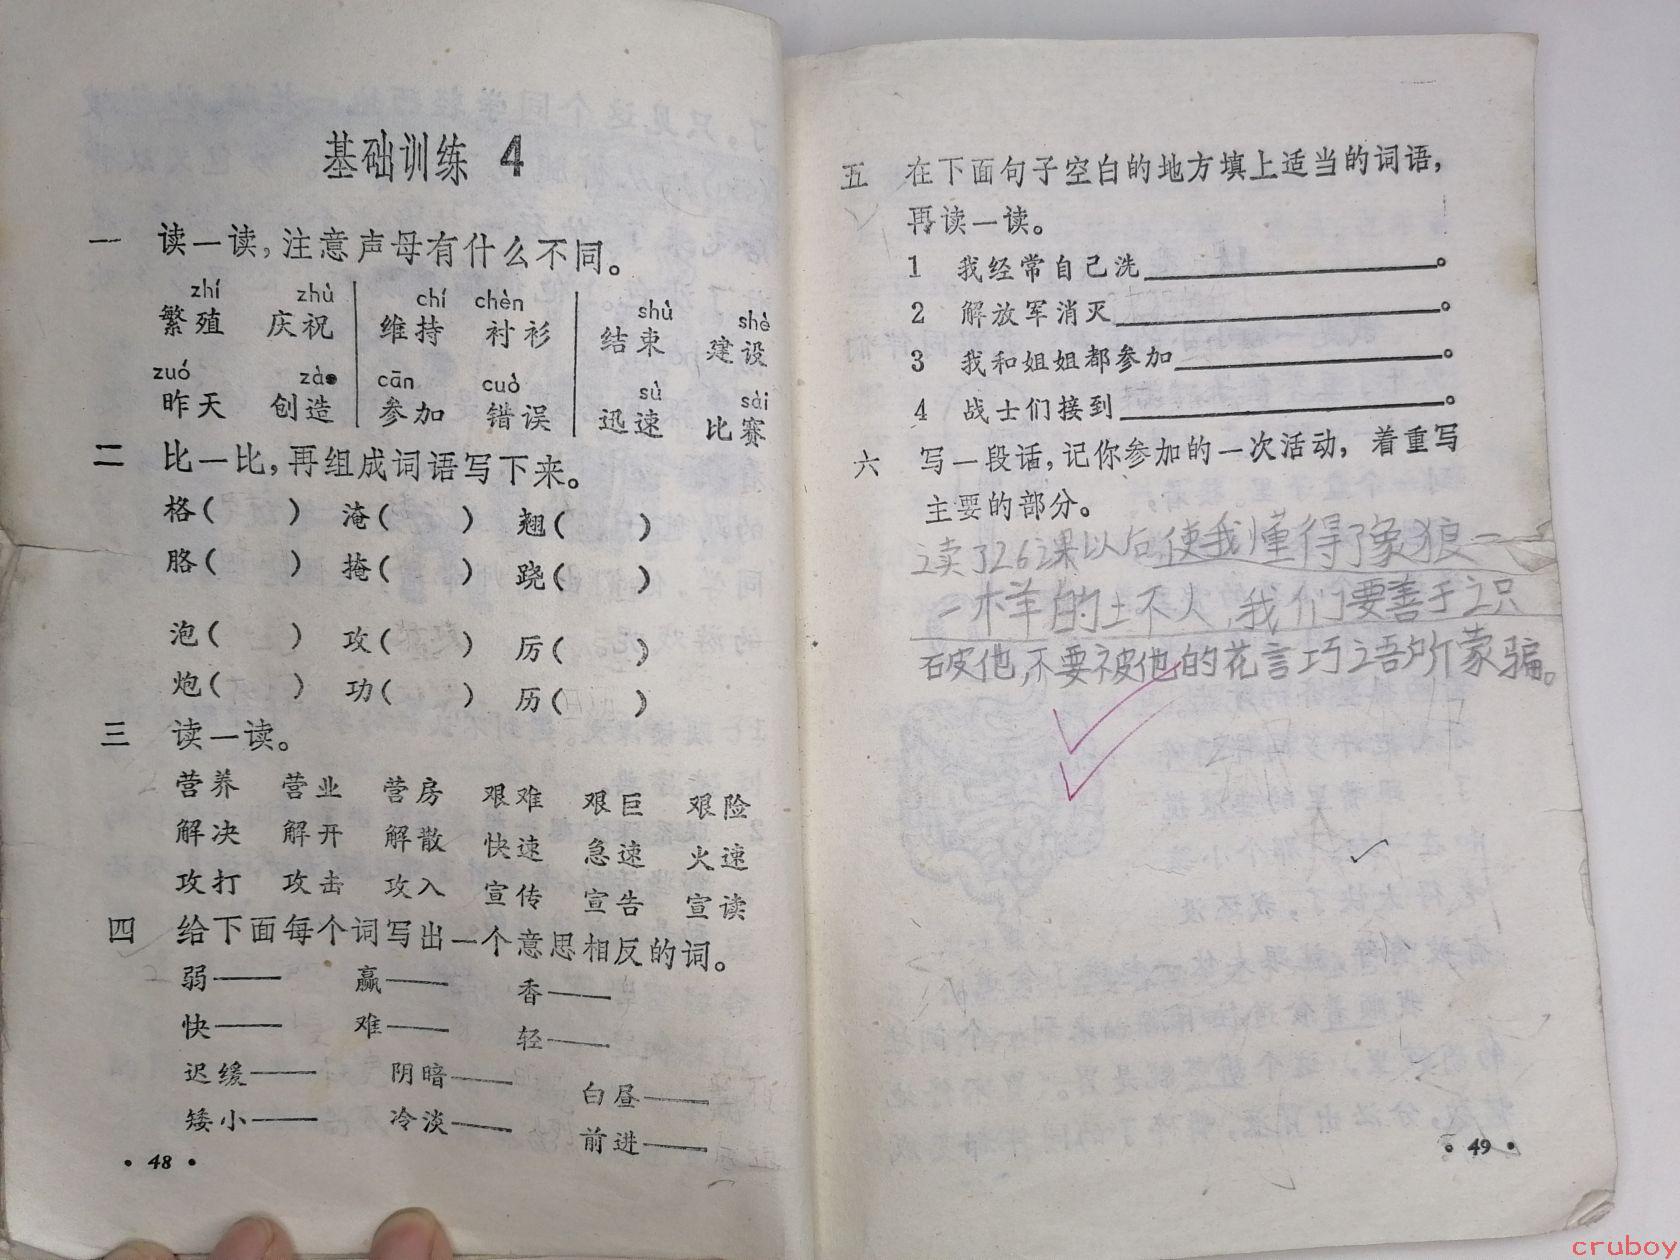 基础训练 4
一 读一读,注意声母有什么不同。
zhí zhù chí chèn shù shè
繁殖 庆祝 维持 衬衫 结束 建设
zuó zào cān cuò sù sài
昨天 创造 参加 错误 迅速 比赛
二 比一比,再组成词语写下来。
格( ) 淹( ) 翘( )
胳( ) 掩( ) 跷( )
泡( ) 攻( ) 厉( )
炮( ) 功( ) 历( )
三 读一读。
营养 营业 营房 艰难 艰巨 艰险
解决 解开 解散 快速 急速 火速
攻打 攻击 攻入 宣传 宣告 宣读
四 给下面每个词写出一个意思相反的词。
弱—— 赢—— 香——
快—— 难—— 轻——
迟缓—— 阴暗—— 白昼——
矮小—— 冷淡—— 前进——
• 48 •
五 在下面句子空白的地方填上适当的词语,
再读一读。
1 我经常自己洗__________。
2 解放军消灭__________。
3 我和姐姐都参加__________。
4 战士们接到__________。
六 写一段话,记你参加的一次活动,着重写
主要的部分。
读了26课以后,使我懂得了象狼一
一样的坏人,我们要善于识
破他,不要被他的花言巧语所蒙骗。
• 49 •
cruboy